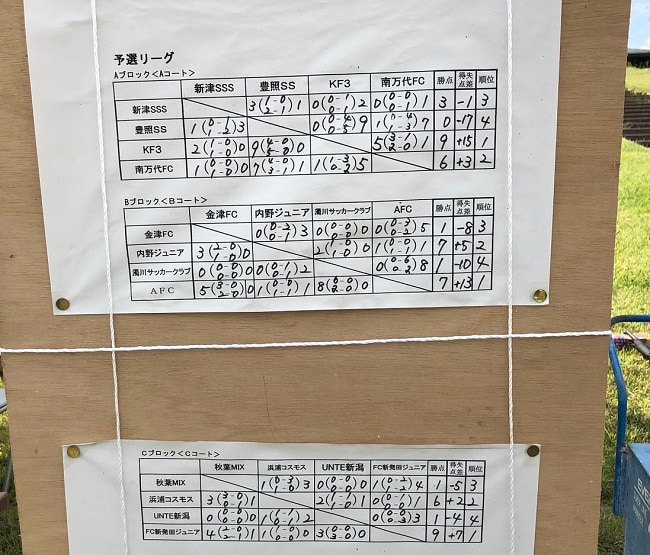 予選リーグ
Aブロック<Aコート>
新津SSS 豊照SS KF3 南万代FC 勝点 得失点差 順位
新津SSS 3(1-0 2-1)1 0(0-1 0-1)2 0(0-0 0-1)1 3 -1 3
豊照SS 1(0-1 1-2)3 0(0-4 0-5)9 1(0-4 1-3)7 0 -17 4
KF3 2(1-0 1-0)0 9(4-0 5-0)0 5(3-1 2-0)1 9 +15 1
南万代FC 1(0-0 1-0)0 7(4-0 3-1)1 1(1-3 0-2)5 6 +3 2
Bブロック<Bコート>
金津FC 内野ジュニア 濁川サッカークラブ AFC 勝点 得失点差 順位
金津FC 0(0-2 0-1)3 0(0-0 0-0)0 0(0-2 0-3)5 1 -8 3
内野ジュニア 3(2-0 1-0)0 2(1-0 1-0)0 1(0-0 1-1)1 7 +5 2
濁川サッカークラブ 0(0-0 0-0)0 0(0-1 0-1)2 0(0-6 0-2)8 1 -10 4
AFC 5(3-0 2-0)0 1(0-0 1-1)1 8(6-0 2-0)0 7 +13 1
Cブロック<Cコート>
秋葉MIX 浜浦コスモス UNTE新潟 FC新発田ジュニア 勝点 得失点差 順位
秋葉MIX 1(0-3 1-0)3 0(0-0 0-0)0 1(0-2 1-2)4 1 -5 3
浜浦コスモス 3(3-0 0-1)1 2(1-1 1-0)1 0(0-0 0-1)1 6 +2 2
UNTE新潟 0(0-0 0-0)0 1(1-1 0-1)2 0(0-0 0-3)3 1 -4 4
FC新発田ジュニア 4(2-0 2-1)1 1(0-0 1-0)0 3(0-0 3-0)0 9 +7 1